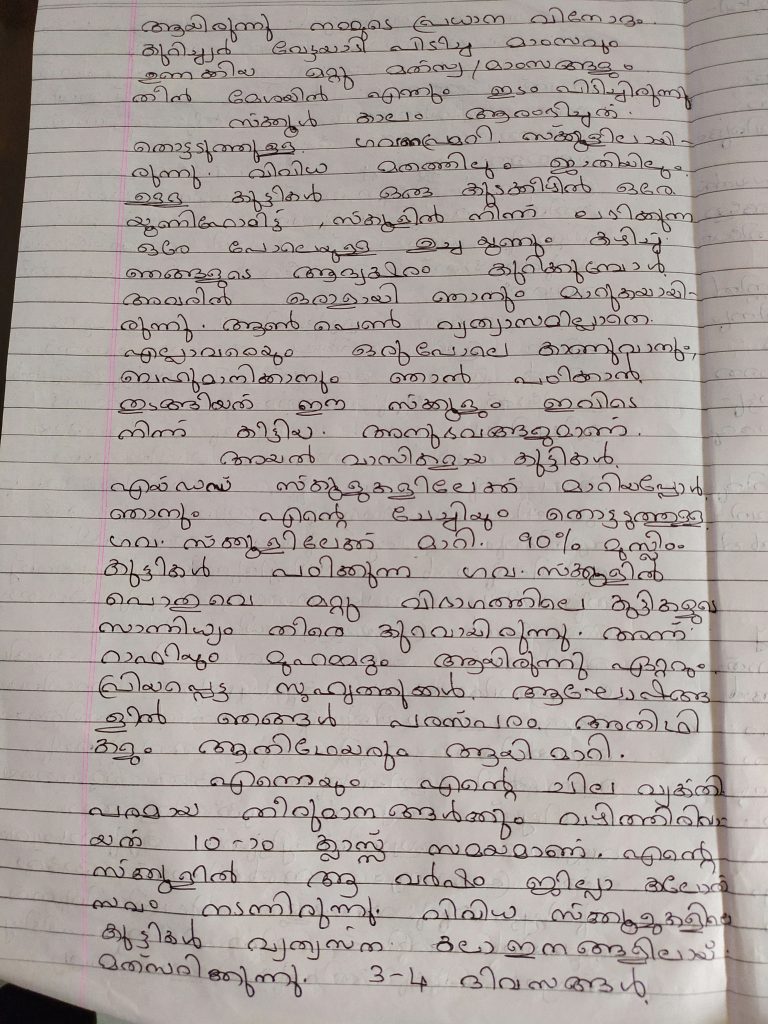 ആയിരുന്നു നമ്മുടെ പ്രധാന വിനോദം.
കുറിച്യർ വേട്ടയാടി പിടിച്ച മാംസവും
ഉണങ്ങിയ മറ്റു മത്സ്യ/മാംസങ്ങളും
തീൻ മേശയിൽ എന്നും ഇടം പിടിച്ചിരുന്നു
സ്ക്കൂൾ കാലം ആരംഭിച്ചത്.
തൊട്ടടുത്തുള്ള ഗവ: പ്രൈമറി. സ്ക്കൂളിലായി-
രുന്നു. വിവിധ മതത്തിലും ജാതിയിലും
ഉള്ള കുട്ടികൾ ഒരു കുടക്കീഴിൽ ഒരേ
യൂണിഫോമിട്ട്, സ്ക്കൂളിൽ നിന്ന് ലഭിക്കുന്ന
ഒരേ പോലെയുള്ള ഉച്ച യൂണും കഴിച്ച്
ഞങ്ങളുടെ ആദ്യക്ഷരം കുറിക്കുമ്പോൾ
അവരിൽ ഒരാളായി ഞാനും മാറുകയായി-
രുന്നു. ആൺ പെൺ വ്യത്യാസമില്ലാതെ
എല്ലാവരെയും ഒരുപോലെ കാണുവാനും,
ബഹുമാനിക്കാനും ഞാൻ പഠിക്കാൻ
തുടങ്ങിയത് ഈ സ്ക്കൂളും ഇവിടെ
നിന്ന് കിട്ടിയ അനുഭവങ്ങളുമാണ്.
അയൽ വാസികളായ കുട്ടികൾ
എയ്ഡഡ് സ്ക്കൂളുകളിലേക്ക് മാറിയപ്പോൾ
ഞാനും എന്റെ ചേച്ചിയും തൊട്ടടുത്തുള്ള
ഗവ. സ്ക്കൂളിലേക്ക് മാറി. 90% മുസ്ലിം
കുട്ടികൾ പഠിക്കുന്ന ഗവ. സ്ക്കൂളിൽ
പൊതുവെ മറ്റു വിഭാഗത്തിലെ കുട്ടികളുടെ
സാന്നിധ്യം തീരെ കുറവായിരുന്നു. അന്ന്
റാഫിയും മുഹമ്മദും ആയിരുന്നു ഏറ്റവും
പ്രിയപ്പെട്ട സുഹൃത്തുക്കൾ. ആഘോഷങ്ങ
ളിൽ ഞങ്ങൾ പരസ്പരം അതിഥി
കളും ആതിഥേയരും ആയി മാറി.
എന്നെയും എന്റെ ചില വ്യക്തി
പരമായ തീരുമാനങ്ങൾക്കും വഴിത്തിരിവാ
യത് 10-ാം ക്ലാസ്സ് സമയമാണ്. എന്റെ
സ്ക്കൂളിൽ ആ വർഷം ജില്ലാ കലോൽ
സവം നടന്നിരുന്നു. വിവിധ സ്ക്കൂളുകളിലെ
കുട്ടികൾ വ്യത്യസ്ത കലാഇനങ്ങളിലായ്
മത്സരിക്കുന്നു. 3-4 ദിവസങ്ങൾ